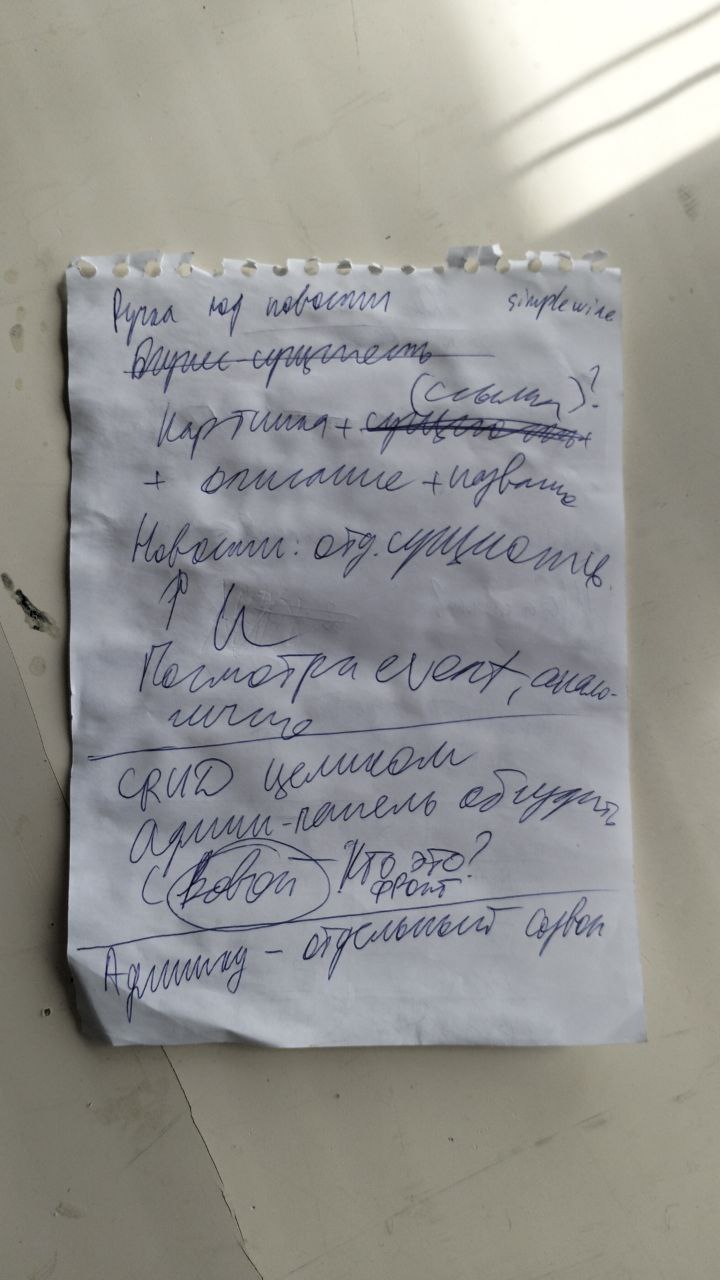 Ручка под новости simplewine
Бизнес-сущность
(ссылка)?
Картинка + сущность +
+ описание + название
Новости: отд. сущность.
Посмотри event, анало-
гично
CRUD целиком
Админ-панель обсудить
с Вовой Кто это?
фронт
Админку - отдельный созвон